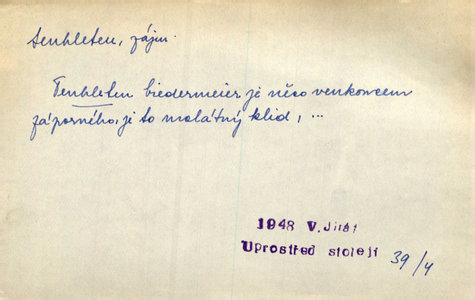 tenhleten, zájm.
Tenhleten biedermeier je něco venkoncem
záporného, je to malátný klid, ...
1948 V. Jirát
Uprostřed století 39/4